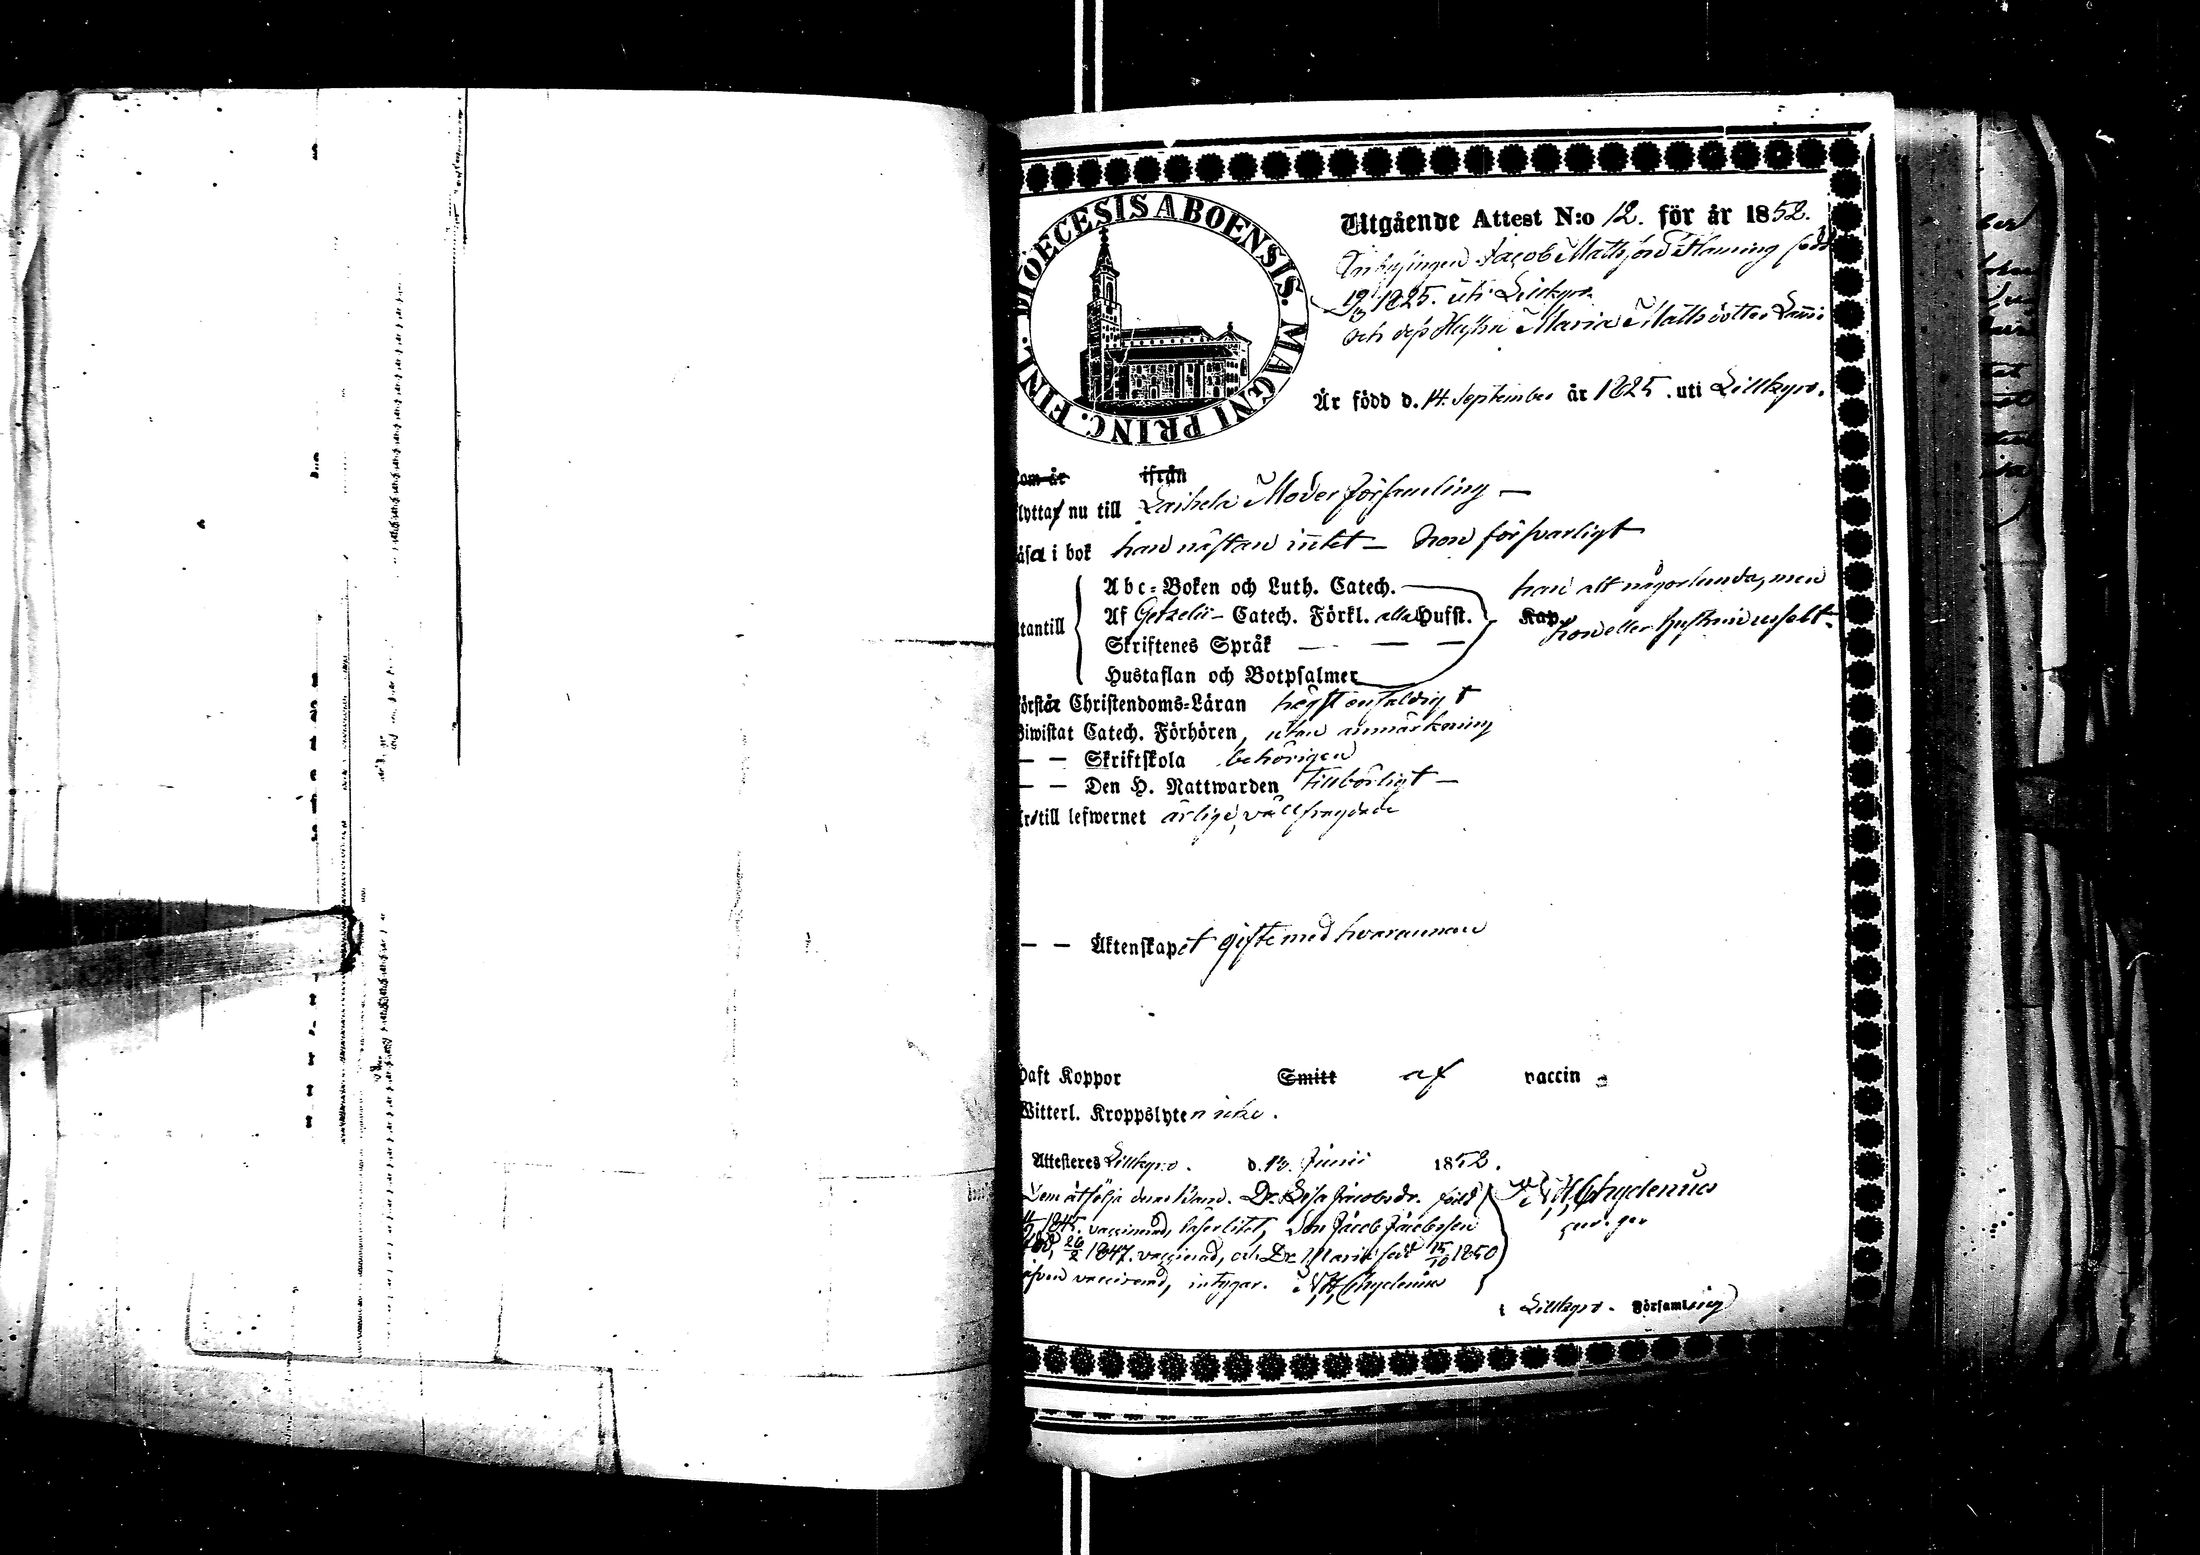 DIÖECESIS ABOENSIS. MAGNI PRINC. FINL.
Utgående Attest N:o 12. för år 1852.
Inhysingen Jacob Mattsson Flaming född
19/3 1825. uti Lillkyro.
och dess Hustru Maria Mattsdotter
Är född d. 14. September år 1825. uti Lillkyro.
om år ifrån
lyttar nu till Laihela Moder församling —
äsa i bok han nästan intet — hon försvarligt
tantill
Abc-Boken och Luth. Catech.
Af Getzelii — Catech. Förkl. alla Hufst. Kap.
Skriftenes Språk — — —
Hustaflan och Botpsalmer
han alt någorlunda, men
hon eller hustrun
örstå Christendoms-Läran högst enfaldigt
Biwistat Catech. Förhören, utan anmärkning
— — Skriftskola behörigen
— — Den H. Nattwarden tillbörligt —
Är till lefwernet ärlige, vällfragdade
— — Äktenskapet gifte med hvarannan
Haft Koppor Smitt af vaccin
Witterl. Kroppslyten icke.
Attesteres Lillkyro. d. 13. Junii 1852.
Dem åtfölja deras barn. Dr. Lisa Jacobsdr. född
1845. vaccinerad, läser litet, Son Jacob Jacobsson
född 26/2 1847. vaccinerad, och Dr. Maria född 15/10 1850
äfven vaccinerad, intygar. N. H. Chydenius
N. H. Chydenius
i Lillkyro. Församling